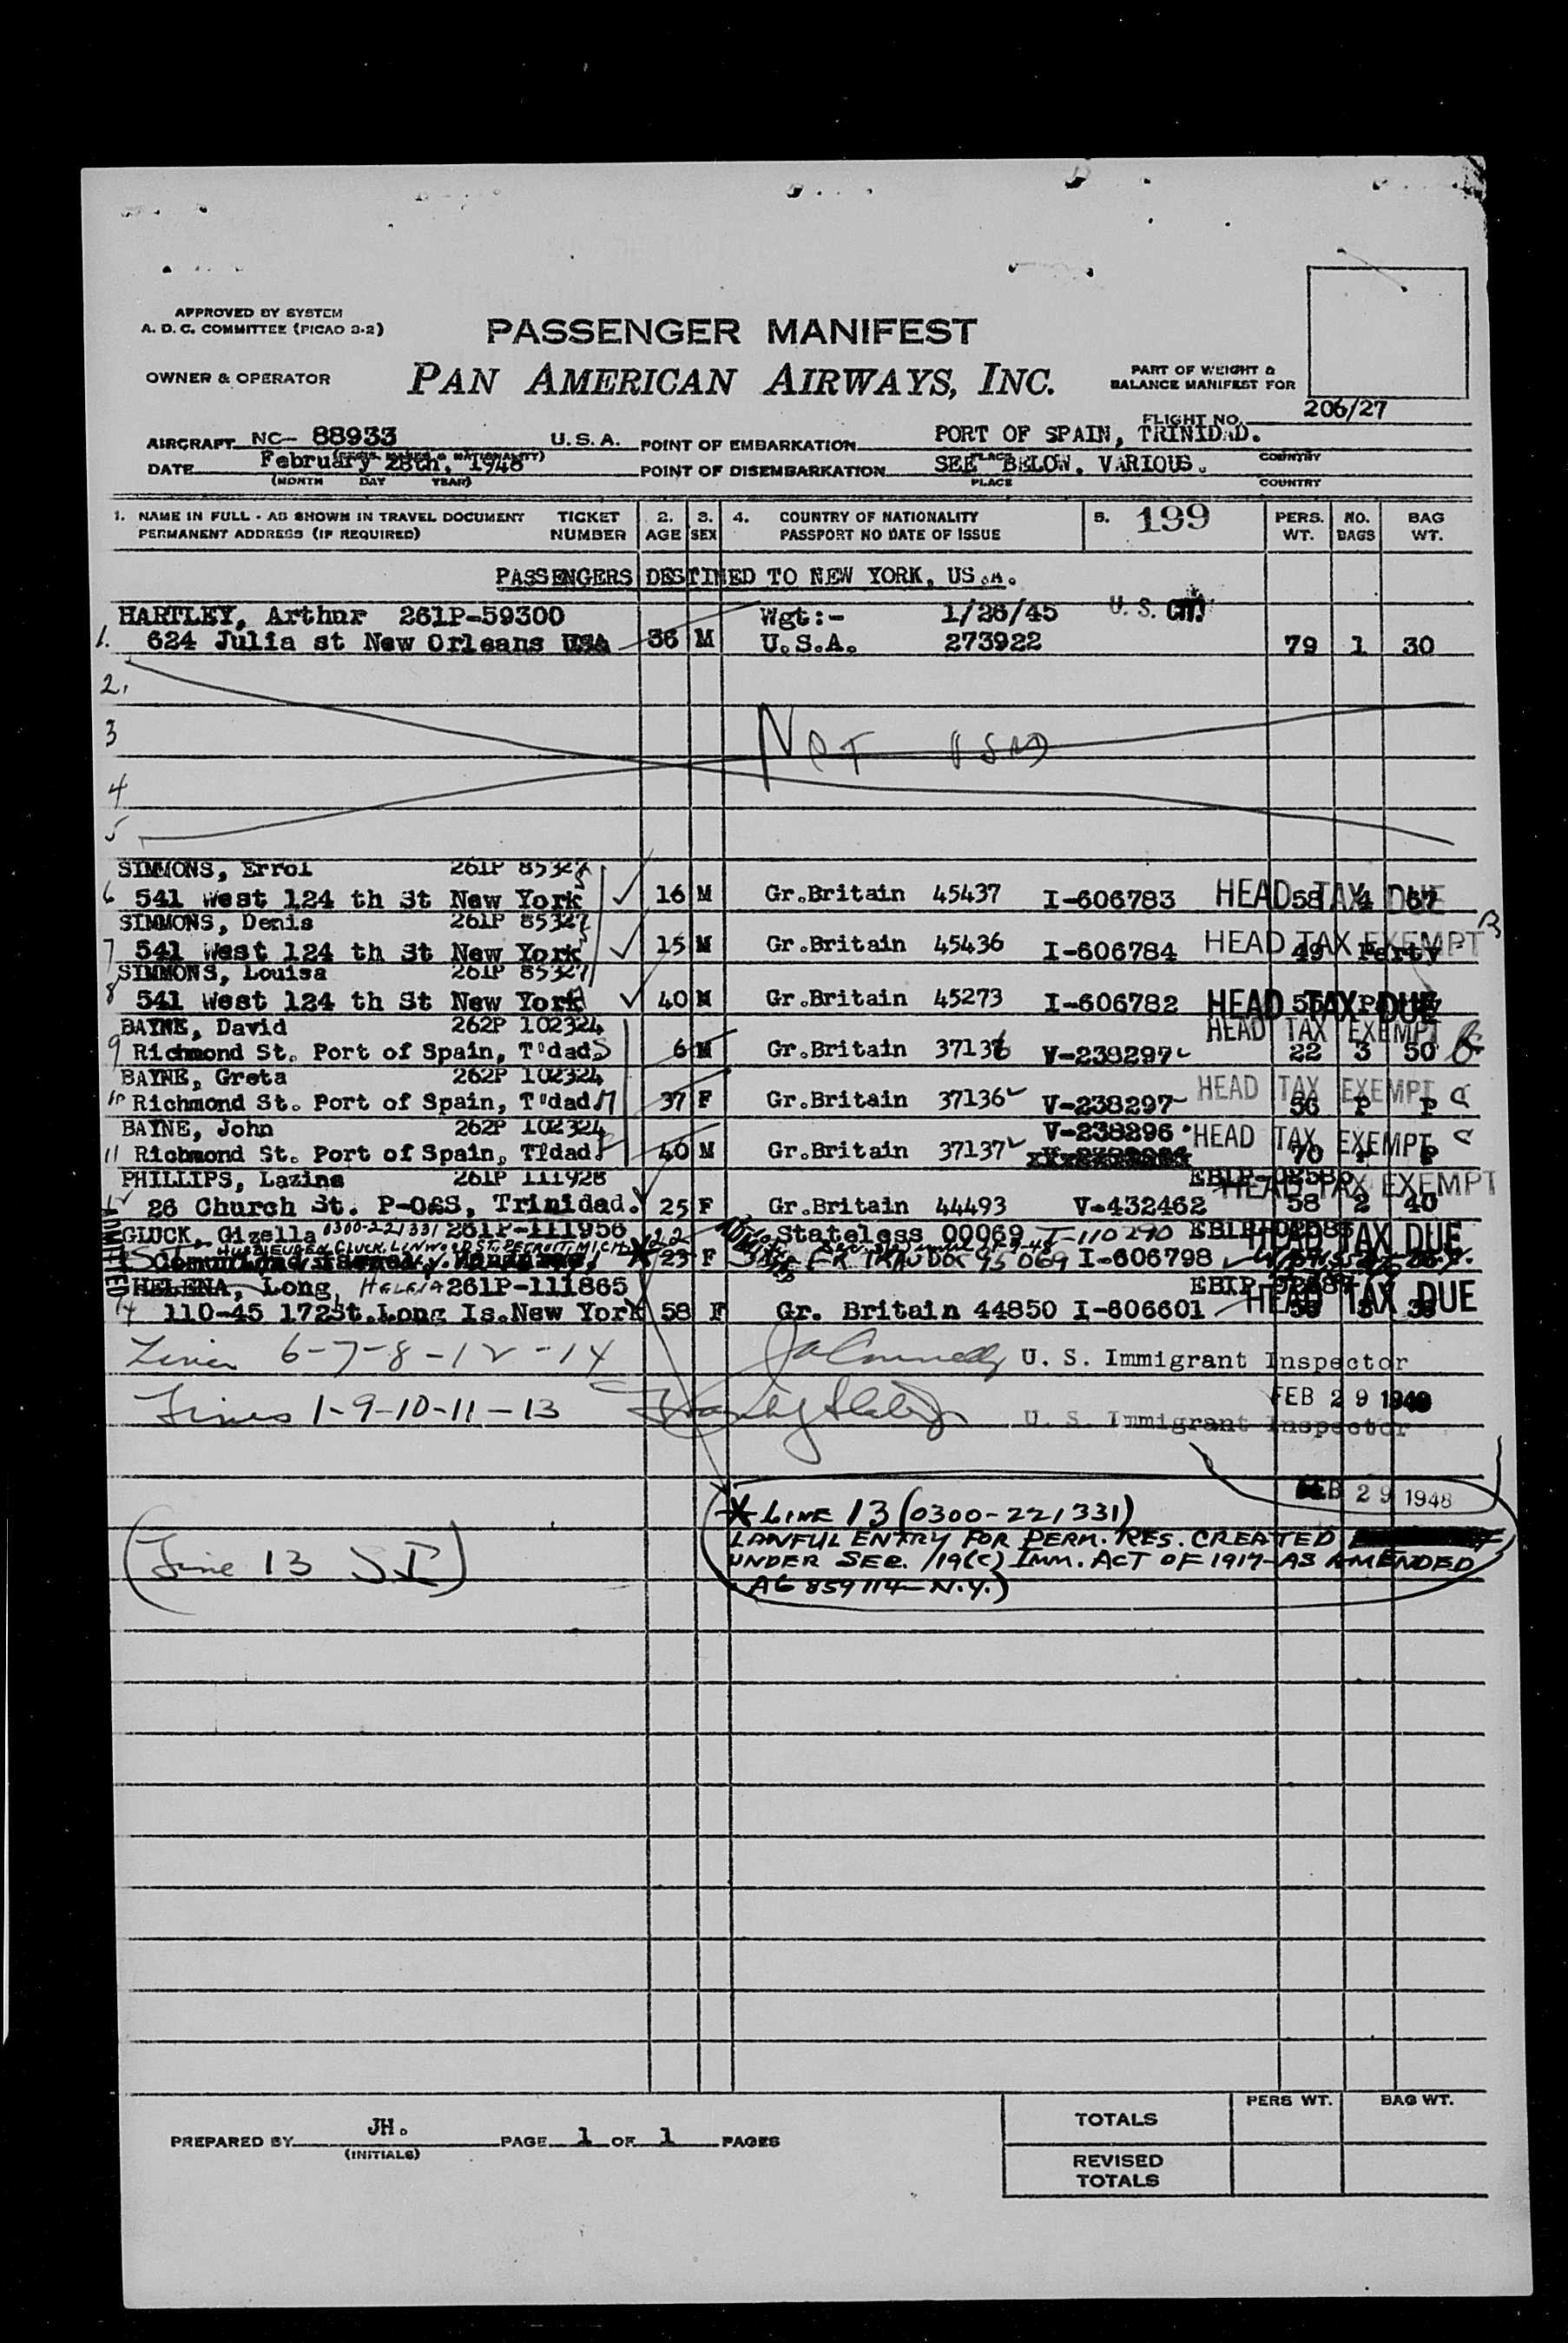 APPROVED BY SYSTEM
A. D. C. COMMITTEE (PICAO 3-2)
PASSENGER MANIFEST
OWNER & OPERATOR
PAN AMERICAN AIRWAYS, INC.
PART OF WEIGHT &
BALANCE MANIFEST FOR
FLIGHT NO. 206/27
AIRCRAFT NC- 88933 U.S.A. POINT OF EMBARKATION PORT OF SPAIN, TRINIDAD.
PLACE COUNTRY
DATE February 28th, 1948 POINT OF DISEMBARKATION SEE BELOW, VARIOUS.
(MONTH DAY YEAR) PLACE COUNTRY
1. NAME IN FULL - AS SHOWN IN TRAVEL DOCUMENT TICKET 2. 3. 4. COUNTRY OF NATIONALITY 5. 199 PERS. NO. BAG
PERMANENT ADDRESS (IF REQUIRED) NUMBER AGE SEX PASSPORT NO DATE OF ISSUE WT. BAGS WT.
PASSENGERS DESTINED TO NEW YORK, US.A.
HARTLEY, Arthur 261P-59300 Wgt:- 1/26/45 U. S. CIT.
1. 624 Julia st New Orleans USA 36 M U.S.A. 273922 79 1 30
2.
3 NOT USED
4
5
SIMMONS, Errol 261P 85327
6 541 West 124 th St New York 16 M Gr.Britain 45437 I-606783 HEAD TAX DUE 58 4 67
SIMMONS, Denis 261P 85327
7 541 West 124 th St New York 15 M Gr.Britain 45436 I-606784 HEAD TAX EXEMPT 49 Party
SIMMONS, Louisa 261P 85327
8 541 West 124 th St New York 40 M Gr.Britain 45273 I-606782 HEAD TAX DUE
BAYNE, David 262P 102324 HEAD TAX EXEMPT
9 Richmond St. Port of Spain, T'dad 6 M Gr.Britain 37136 V-238297 22 3 50
BAYNE, Greta 262P 102324 HEAD TAX EXEMPT
10 Richmond St. Port of Spain, T'dad 37 F Gr.Britain 37136 V-238297 56 P P
BAYNE, John 262P 102324 V-238296 HEAD TAX EXEMPT
11 Richmond St. Port of Spain, T'dad 40 M Gr.Britain 37137 70 P P
PHILLIPS, Lazina 261P 111928 HEAD TAX EXEMPT
12 26 Church St. P-O&S, Trinidad. 25 F Gr.Britain 44493 V-432462 58 2 40
ADMITTED
GLUCK, Gizella 0300-221331 261P-111956 22 Stateless 00069 T-110290 HEAD TAX DUE
EUGEN GLUCK. LINWOOD ST. DETROIT. MICH 23 F TRAV DOC 95069 I-606798
HELENA, Long, HELENA 261P-111865
14 110-45 172St.Long Is.New York 58 F Gr. Britain 44850 I-606601 HEAD TAX DUE
Lines 6-7-8-12-14 U. S. Immigrant Inspector
FEB 29 1948
Lines 1-9-10-11-13 U. S. Immigrant Inspector
FEB 29 1948
* LINE 13 (0300-221331)
LAWFUL ENTRY FOR PERM. RES. CREATED
(Line 13 SI) UNDER SEC. 19(C) IMM. ACT OF 1917-AS AMENDED
A6 859114-N.Y.)
PERS WT. BAG WT.
TOTALS
PREPARED BY JH. PAGE 1 OF 1 PAGES
(INITIALS)
REVISED
TOTALS